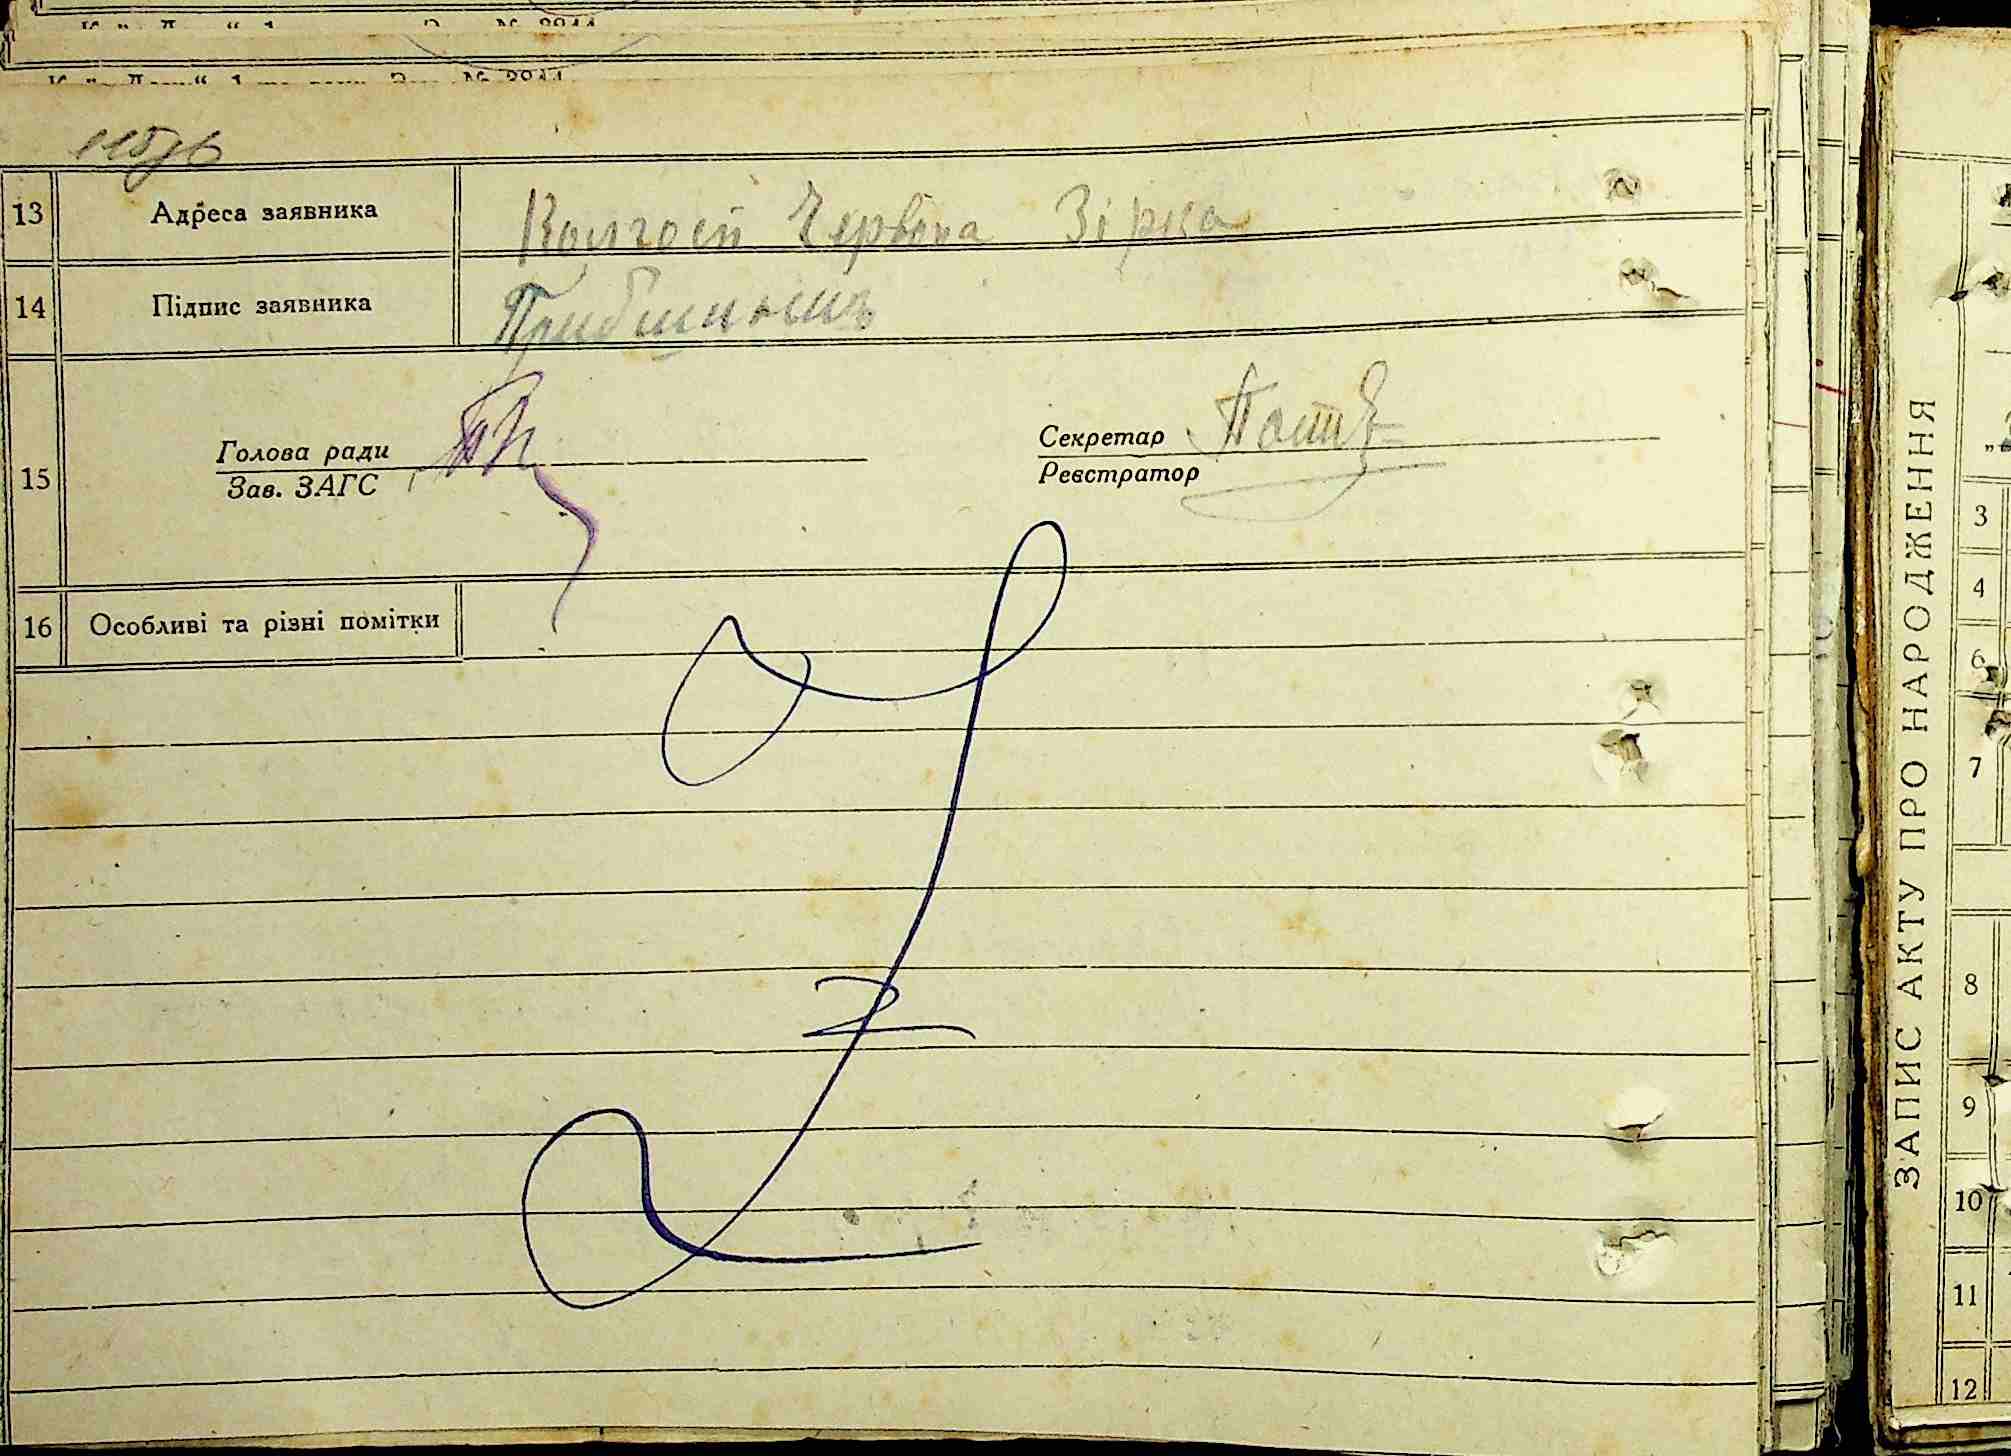 13 Адреса заявника Колгосп Червона Зірка
14 Підпис заявника
15 Голова ради Секретар
Зав. ЗАГС Реєстратор
16 Особливі та різні помітки
ЗАПИС АКТУ ПРО НАРОДЖЕННЯ
3
4
6
7
8
9
10
11
12